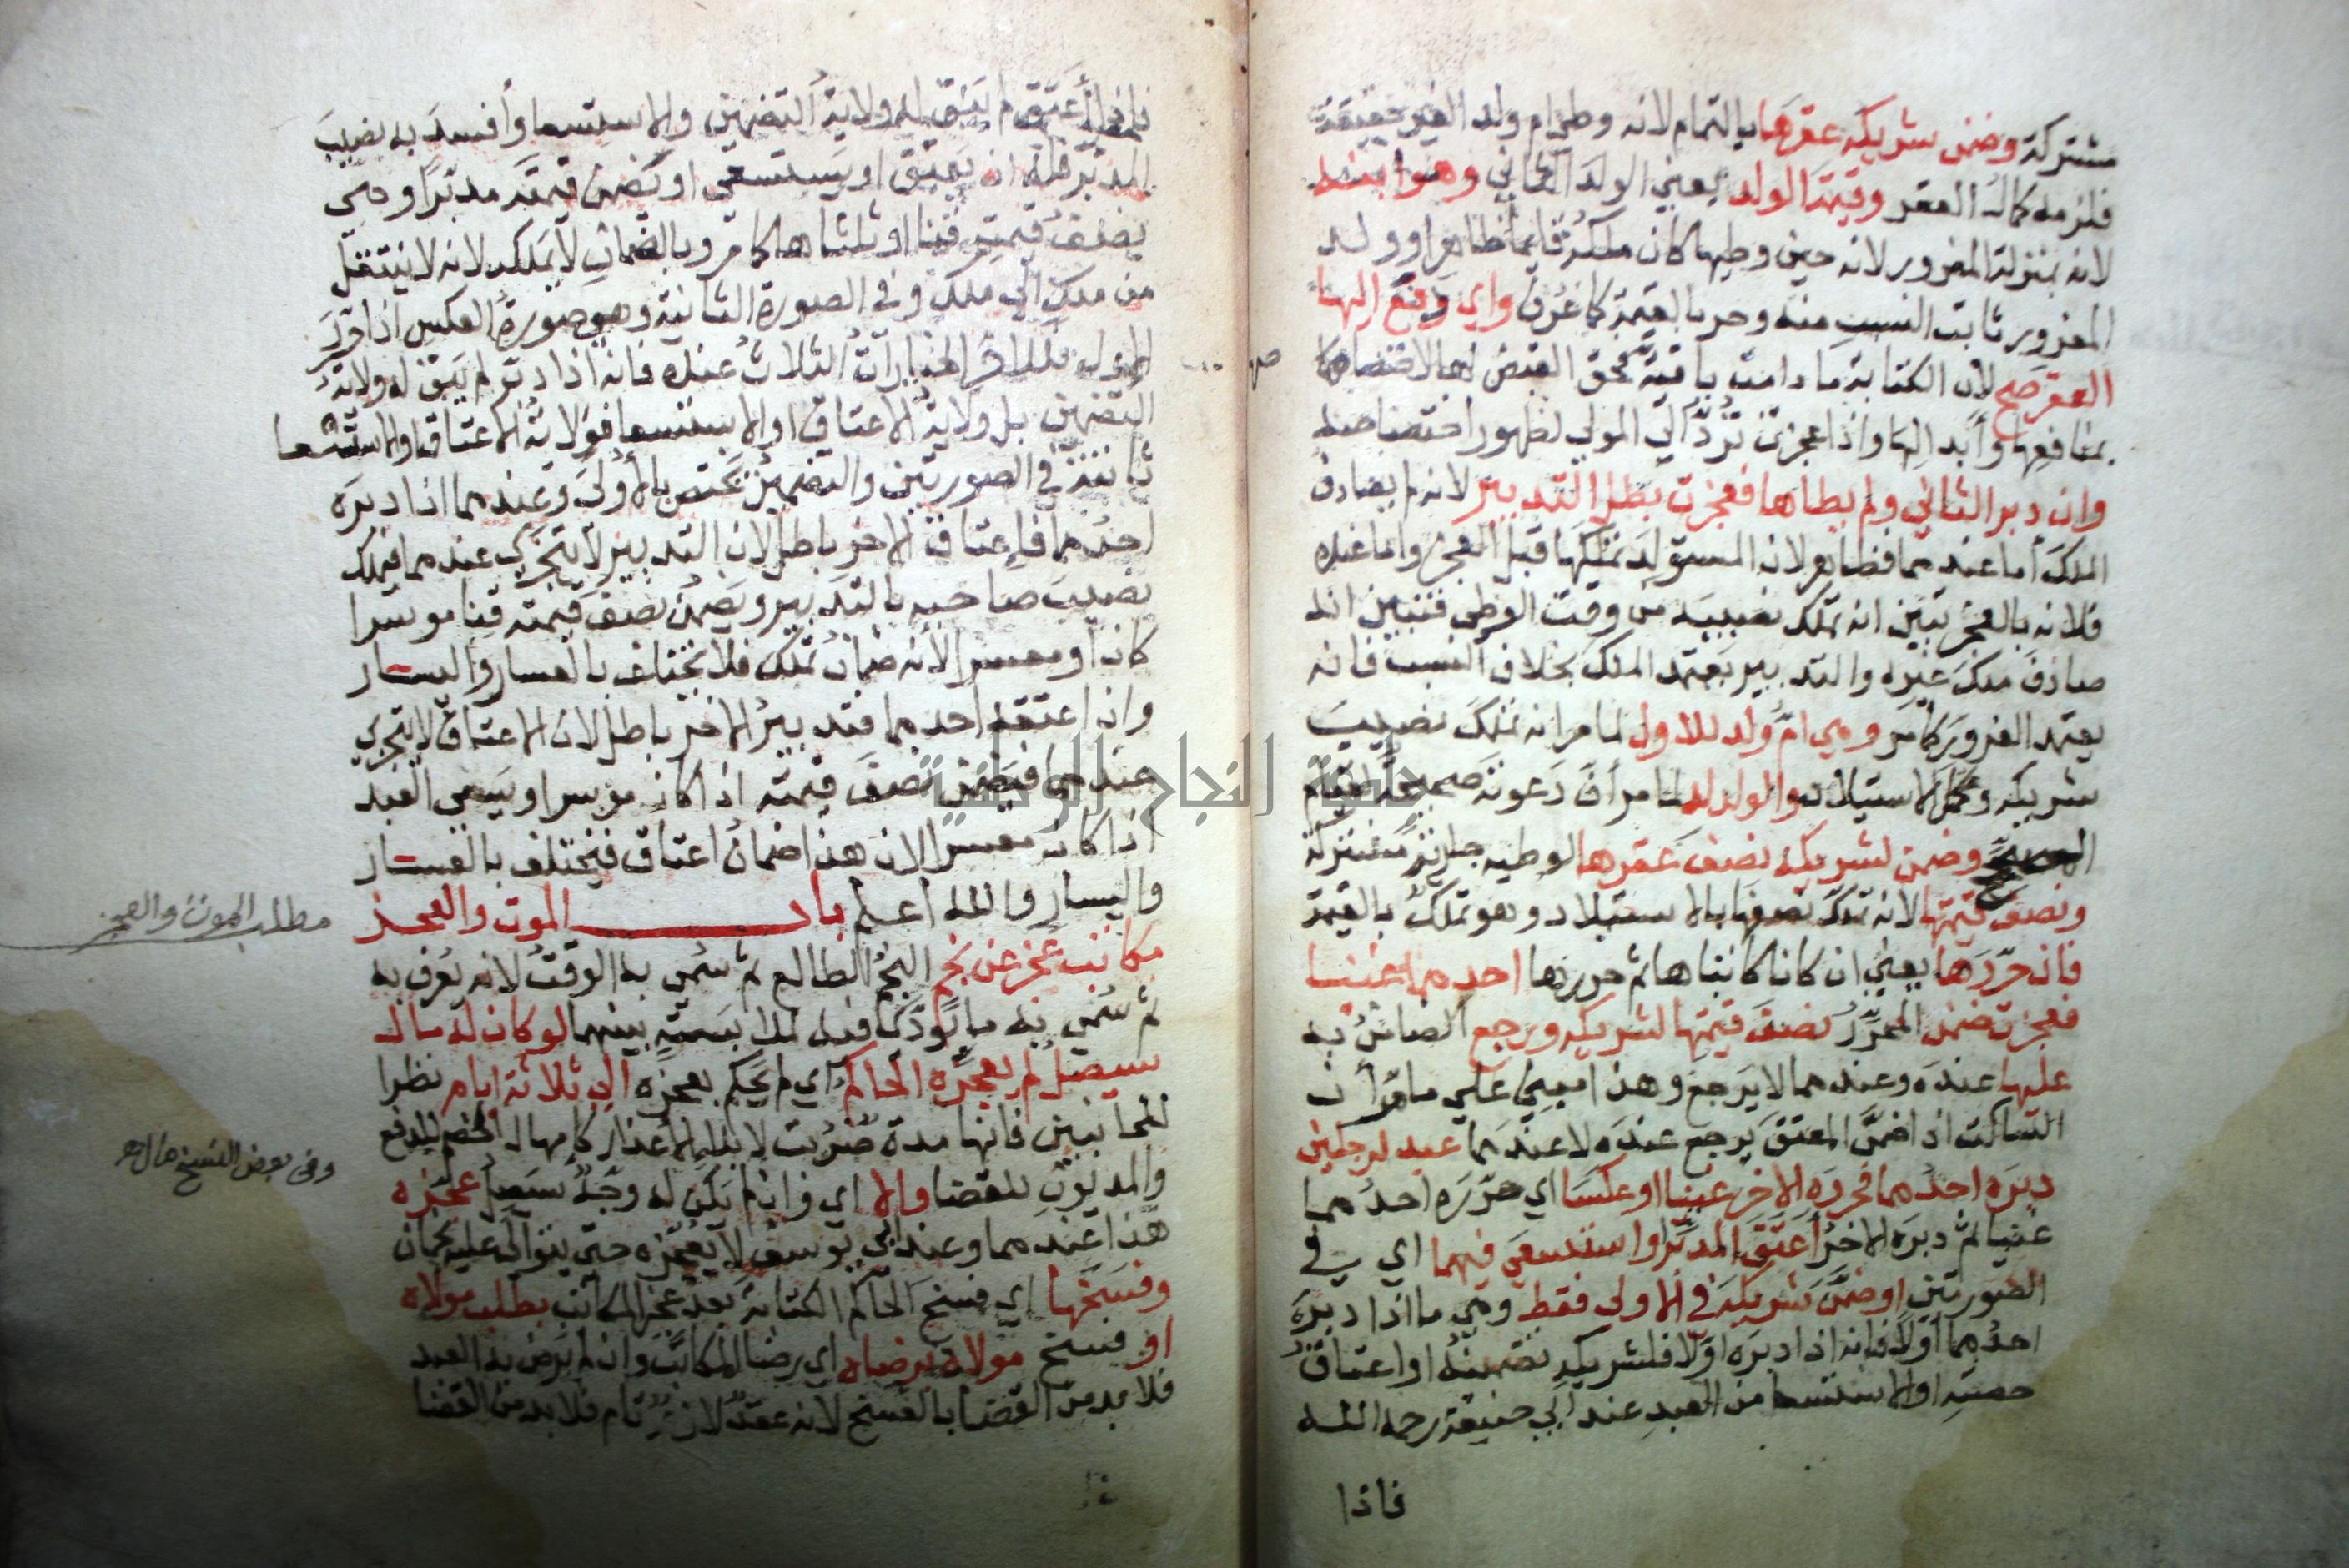 مشتركة وضمن شريكه عقرها بالتمام لانه وطئ ام ولد الغير حقيقة
فلزمه كمال العقر وقيمة الولد يعني الولد الثاني وهو ابنه
لانه بمنزلة المغرور لانه حين وطيها كان ملكه قايما ظاهرا وولد
المغرور ثابت النسب منه وحر بالقيمة كما عرف واي دفع اليها
العقر صح لان الكتابة ما دامت باقية فحق القبض لها لاختصاصها
بمنافعها وأبدالها واذا عجزت ترد الى المولي لظهور اختصاصه
وان دبر الثاني ولم يطاها فعجزت بطل التدبير لانه لم يصادف
الملك اما عندهما فظاهر لان المستولد تملكها قبل العجز واما عنده
فلانه بالعجز تبين انه تملك نصيبه من وقت الوطي فتبين انه
صادف ملك غيره والتدبير يعتمد الملك بخلاف النسب فانه
يعتمد الغرور كما مر وهي ام ولد للاول لما مر انه تملك نصيب
شريكه وكمل الاستيلاد والولد له لما مر أن دعوته صحيحة لقيام
وضمن لشريكه نصف عقرها لوطيه جارية مشتركة
ونصف قيمتها لانه تملك نصفها بالاستيلاد وهو تملك بالقيمة
فان حررها يعني ان كانا كاتباها ثم حررها احدهما غنيا
فعجزت ضمن المحرر نصف قيمتها لشريكه ورجع الضامن به
عليها عنده وعندهما لا يرجع وهذا مبني علي ما مر أن
الساكت اذا ضمن المعتق يرجع عنده لا عندهما عبد لرجلين
دبره احدهما فحرره الاخر غنيا او عكسا اي حرره احدهما
غنيا ثم دبره الاخر أعتق المدبر او استسعي فيهما اي في
الصورتين او ضمن شريكه في الاولي فقط وهي ما اذا دبره
احدهما أولا فانه اذا دبره اولا فلشريكه تضمينه او اعتاق
حصته او الاستسعا من العبد عند ابي حنيفة رحمه الله
فاذا
فاذا أعتق لم يبق له ولاية التضمين والاستسعا وأفسد به نصيب
المدبر فله ان يعتق او يستسعي او يضمن قيمته مدبرا وهي
نصف قيمته قنا او ثلثاها كما مر وبالضمان لا يملكه لانه لا ينتقل
من ملك الى ملك وفي الصورة الثانية وهو صورة العكس اذا حرر
الخيارات الثلاث عنده فانه اذا دبر لم يبق له ولاية
التضمين بل ولاية الاعتاق او الاستسعا فولاية الاعتاق او الاستسعا
ثابتة في الصورتين والتضمين يختص بالأولى وعندهما اذا دبره
احدهما فإعتاق الاخر باطل لان التدبير لا يتجزي عندهما فيملك
نصيب صاحبه بالتدبير ويضمن نصف قيمته قنا موسرا
كان او معسرا لأنه ضمان تملك فلا يختلف بالعسار واليسار
وان اعتقه احدهما فتدبير الاخر باطل لان الاعتاق لا يتجزي
عندهما فيضمن نصف قيمته اذا كان موسرا ويسعي العبد
اذا كان معسرا لان هذا ضمان اعتاق فيختلف بالعسار
واليسار والله أعلم باب الموت والعجز
مطلب الموت والعجز
مكاتب عجز عن نجم النجم الطالع ثم سمي به الوقت لانه يعرف به
ثم سمي به ما يؤدي فيه لملابسة بينهما لو كان له مال
سيصل لم يعجزه الحاكم اي لم يحكم بعجزه الى ثلاثة ايام نظرا
للجانبين فانها مدة ضربت لابلاء الاعذار كامهال الخصم للدفع
وفي بعض النسخ
والمديون للقضا والا اي وان لم يكن له وجه سيصل عجزه
هذا عندهما وعند ابي يوسف لا يعجزه حتى يتوالى عليه نجمان
وفسخها اي فسخ الحاكم الكتابة بعد عجز المكاتب بطلب مولاه
او فسخ مولاه برضاه اي رضا المكاتب وان لم يرض به العبد
فلا بد من القضا بالفسخ لانه عقد لازم تام فلا بد من القضا
حقيبة النجاح الوطنية